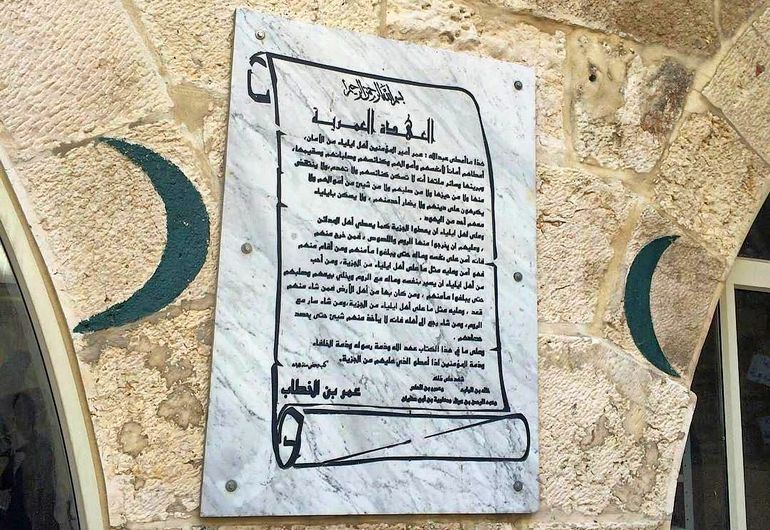 بسم الله الرحمن الرحيم
العهدة العمرية
هذا ما أعطى عبدالله : عمر أمير المؤمنين أهل ايلياء من الأمان،
أعطاهم أماناً لأنفسهم وأموالهم ولكنائسهم وصلبانهم وسقيمها،
وبريئها وسائر ملتها أنه لا تسكن كنائسهم ولا تهدم، ولا ينتقض
منها ولا من حيزها ولا من صلبهم ولا من شيئ من أموالهم ولا
يكرهون على دينهم ولا يضار أحدمنهم، ولا يسكن بايلياء
معهم أحد من اليهود .
وعلى أهل ايلياء ان يعطوا الجزية كما يعطي أهل المدائن
، وعليهم ان يخرجوا منها الروم واللصوص ، فمن خرج منهم
فانه آمن على نفسه وماله حتى يبلغوا مأمنهم، ومن أقام منهم
فهو آمن وعليه مثل ما على أهل ايلياء من الجزية، ومن أحب
من أهل ايلياء ان يسير بنفسه وماله مع الروم ويخلي بيعهم وصلبهم
حتى يبلغوا مأمنهم ، ومن كان بها من أهل الأرض فمن شاء منهم
قعد ، وعليه مثل ما على أهل ايلياء من الجزية، ومن شاء سار مع
الروم، ومن شاء رجع الى أهله فانه لا يأخذ منهم شيئ حتى يحصد
حصادهم.
وعلى ما في هذا الكتاب عهد الله وذمة رسوله وذمة الخلفاء
وذمة المؤمنين اذا أعطوا الذي عليهم من الجزية.
شهد على ذلك
خالد بن الوليد وعمرو بن العاص
وعبد الرحمن بن عوف ومعاوية بن أبي سفيان
عمر بن الخطاب